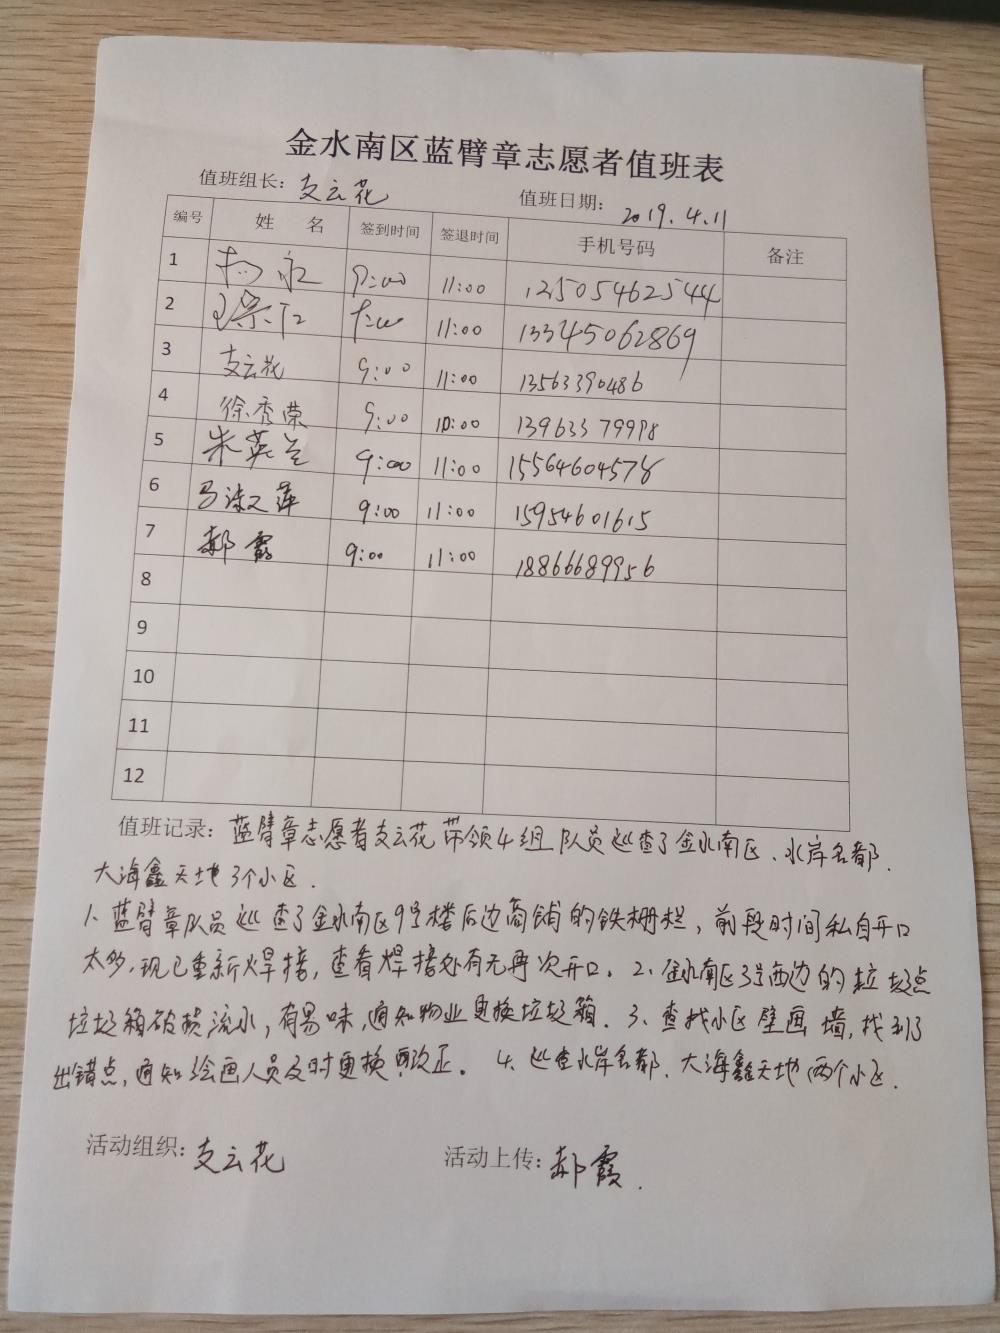 金水南区蓝臂章志愿者值班表
值班组长：支云花 值班日期：2019.4.11
编号 姓名 签到时间 签退时间 手机号码 备注
1 9:00 11:00
2 11:00 13345062869
3 支云花 9:00 11:00 13563390486
4 徐秀荣 9:00 10:00 13963379998
5 朱英兰 9:00 11:00 15564604578
6 马淑萍 9:00 11:00 15954601615
7 郝霞 9:00 11:00 18866689956
8
9
10
11
12
值班记录：蓝臂章志愿者支云花带领4组队员巡查了金水南区、水岸名都.
大海鑫天地3个小区.
1、蓝臂章队员巡查了金水南区9号楼后边商铺的铁栅栏，前段时间私自开口
太多，现已重新焊接，查看焊接处有无再次开口。2、金水南区3号西边的垃圾点
垃圾箱破损流水，有异味，通知物业更换垃圾箱. 3、查找小区壁画墙，找到了
出错点，通知绘画人员及时更换改正。4、巡查水岸名都、大海鑫天地两个小区.
活动组织：支云花 活动上传：郝霞.